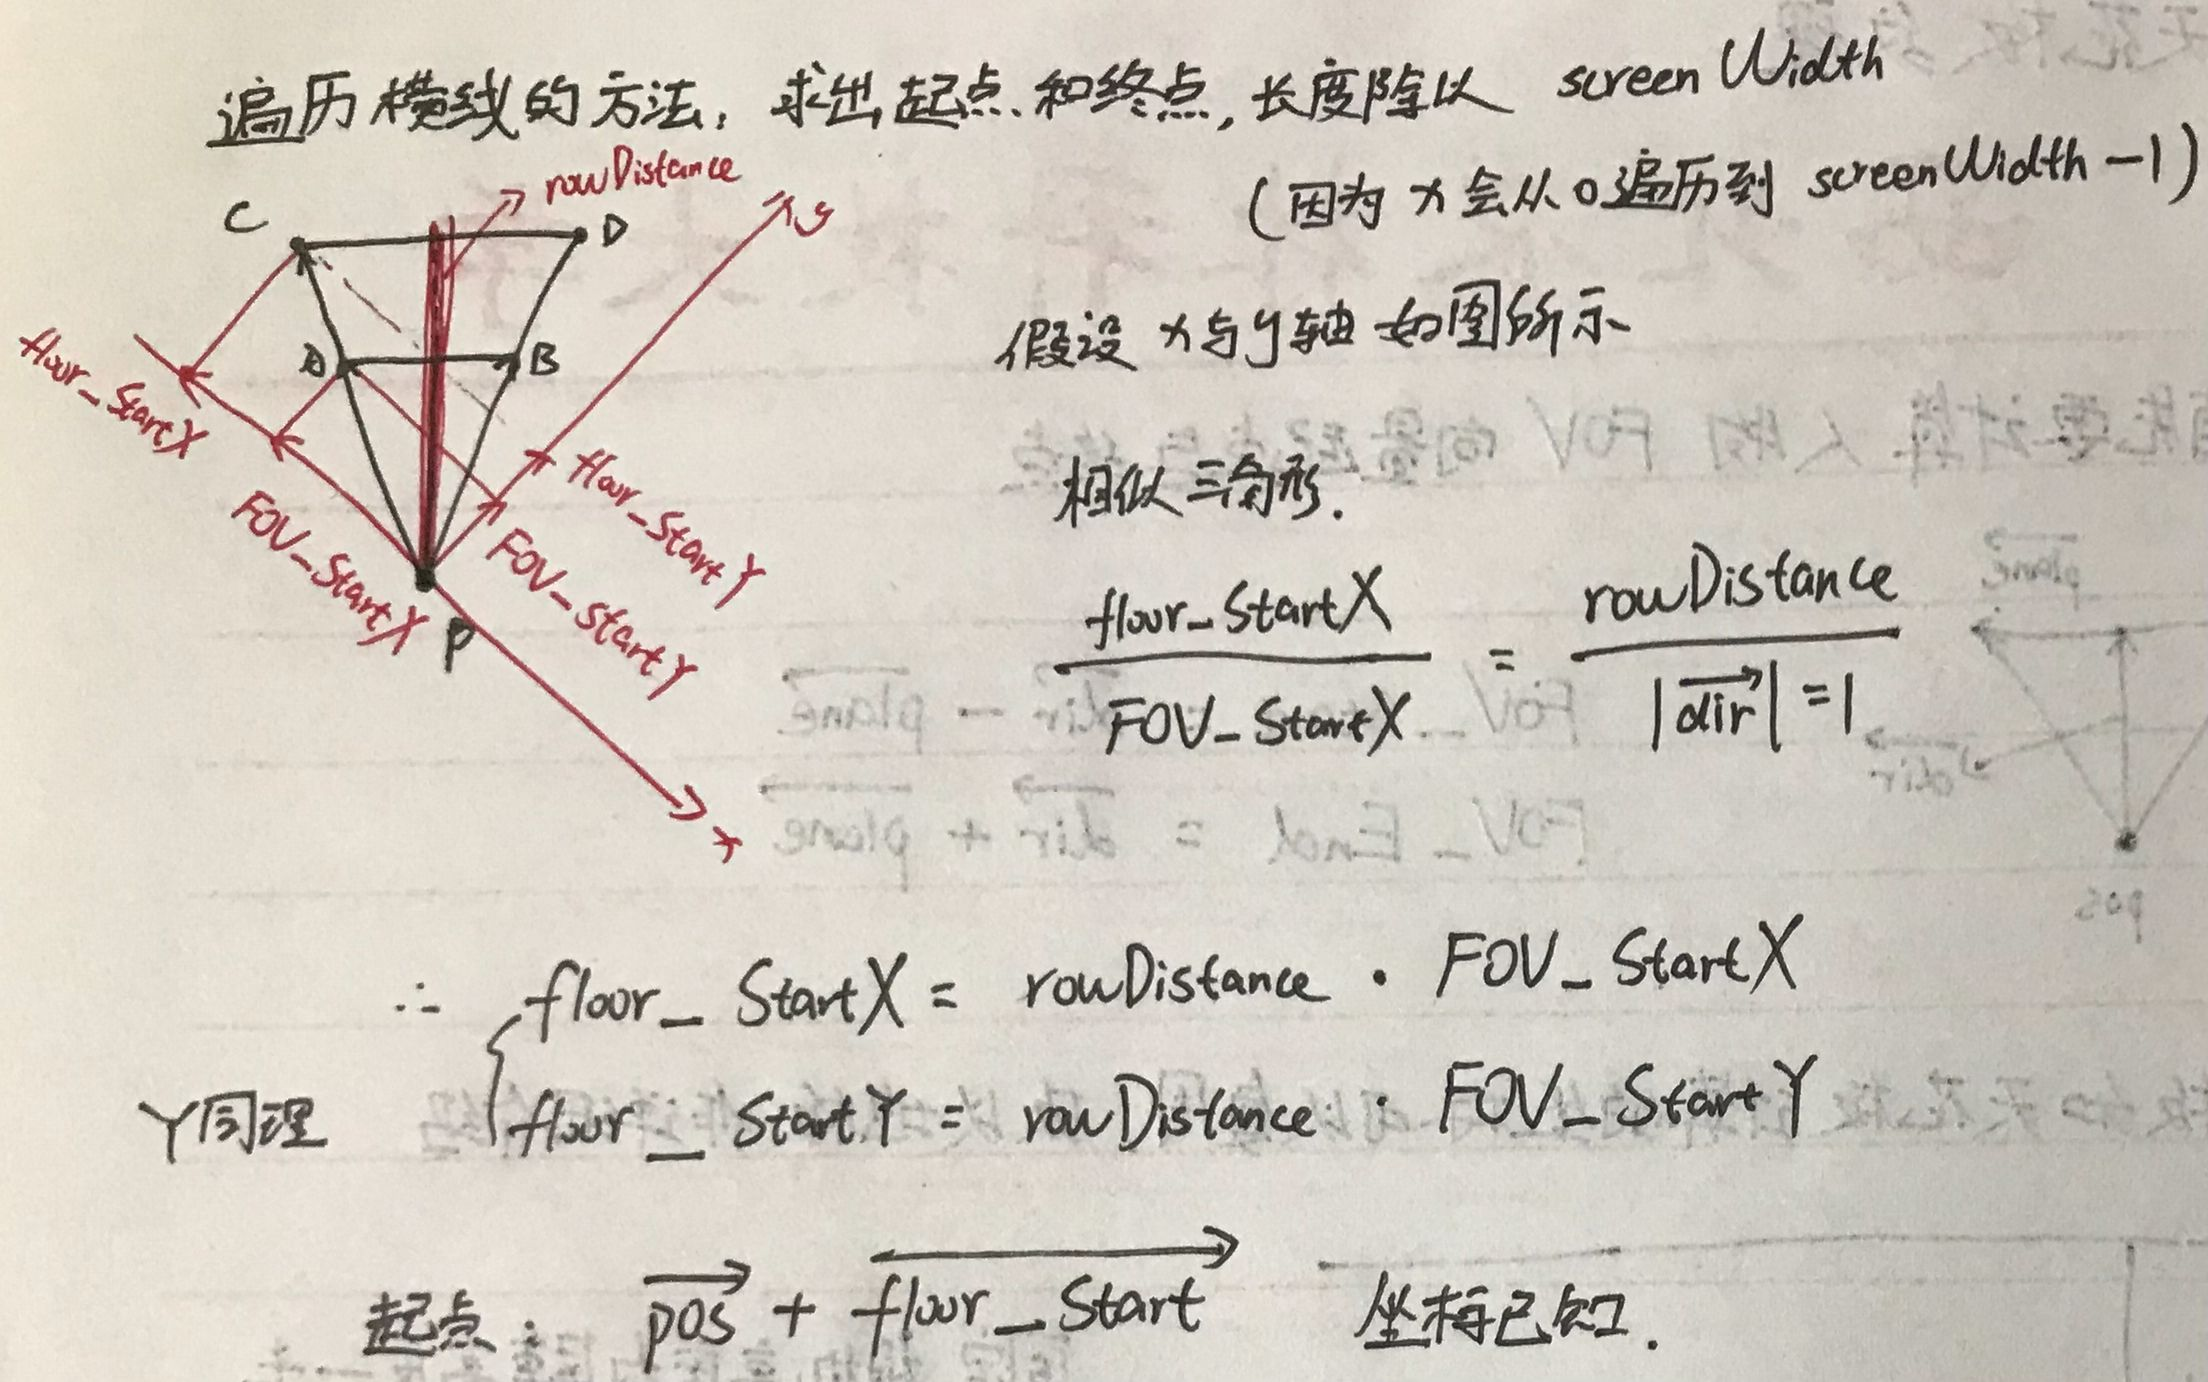 遍历横线的方法，求出起点和终点，长度除以 screenWidth
(因为 x 会从0遍历到 screenWidth-1)
rowDistance
C
D
y
假设 x与y轴 如图所示
A
B
floor_StartX
floor_StartY
FOV_StartX
FOV_StartY
P
x
相似三角形.
floor_StartX / FOV_StartX = rowDistance / |dir|=1
∴ floor_StartX = rowDistance · FOV_StartX
Y同理 floor_StartY = rowDistance · FOV_StartY
起点: pos + floor_Start 坐标已知.
FOV_ dir - plane
FOV_End = dir + plane
plane
dir
pos